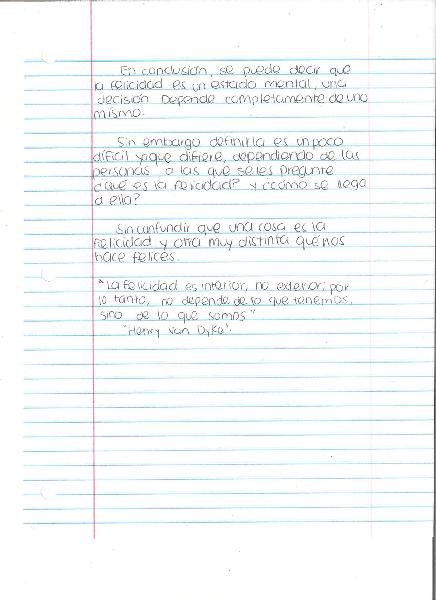 En conclusión, se puede decir que
la felicidad es un estado mental, una
decisión. Depende completamente de uno
mismo.
Sin embargo definirla es un poco
difícil ya que difiere, dependiendo de las
personas a las que se les pregunte
¿qué es la felicidad? y ¿cómo se llega
a ella?
Sin confundir que una cosa es la
felicidad y otra muy distinta que nos
hace felices.
"La felicidad es interior, no exterior; por
lo tanto, no depende de lo que tenemos,
sino de lo que somos"
"Henry Van Dyke".